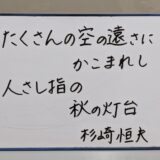 たくさんの空の遠さに
かこまれし
人さし指の
秋の灯台
杉﨑恒夫